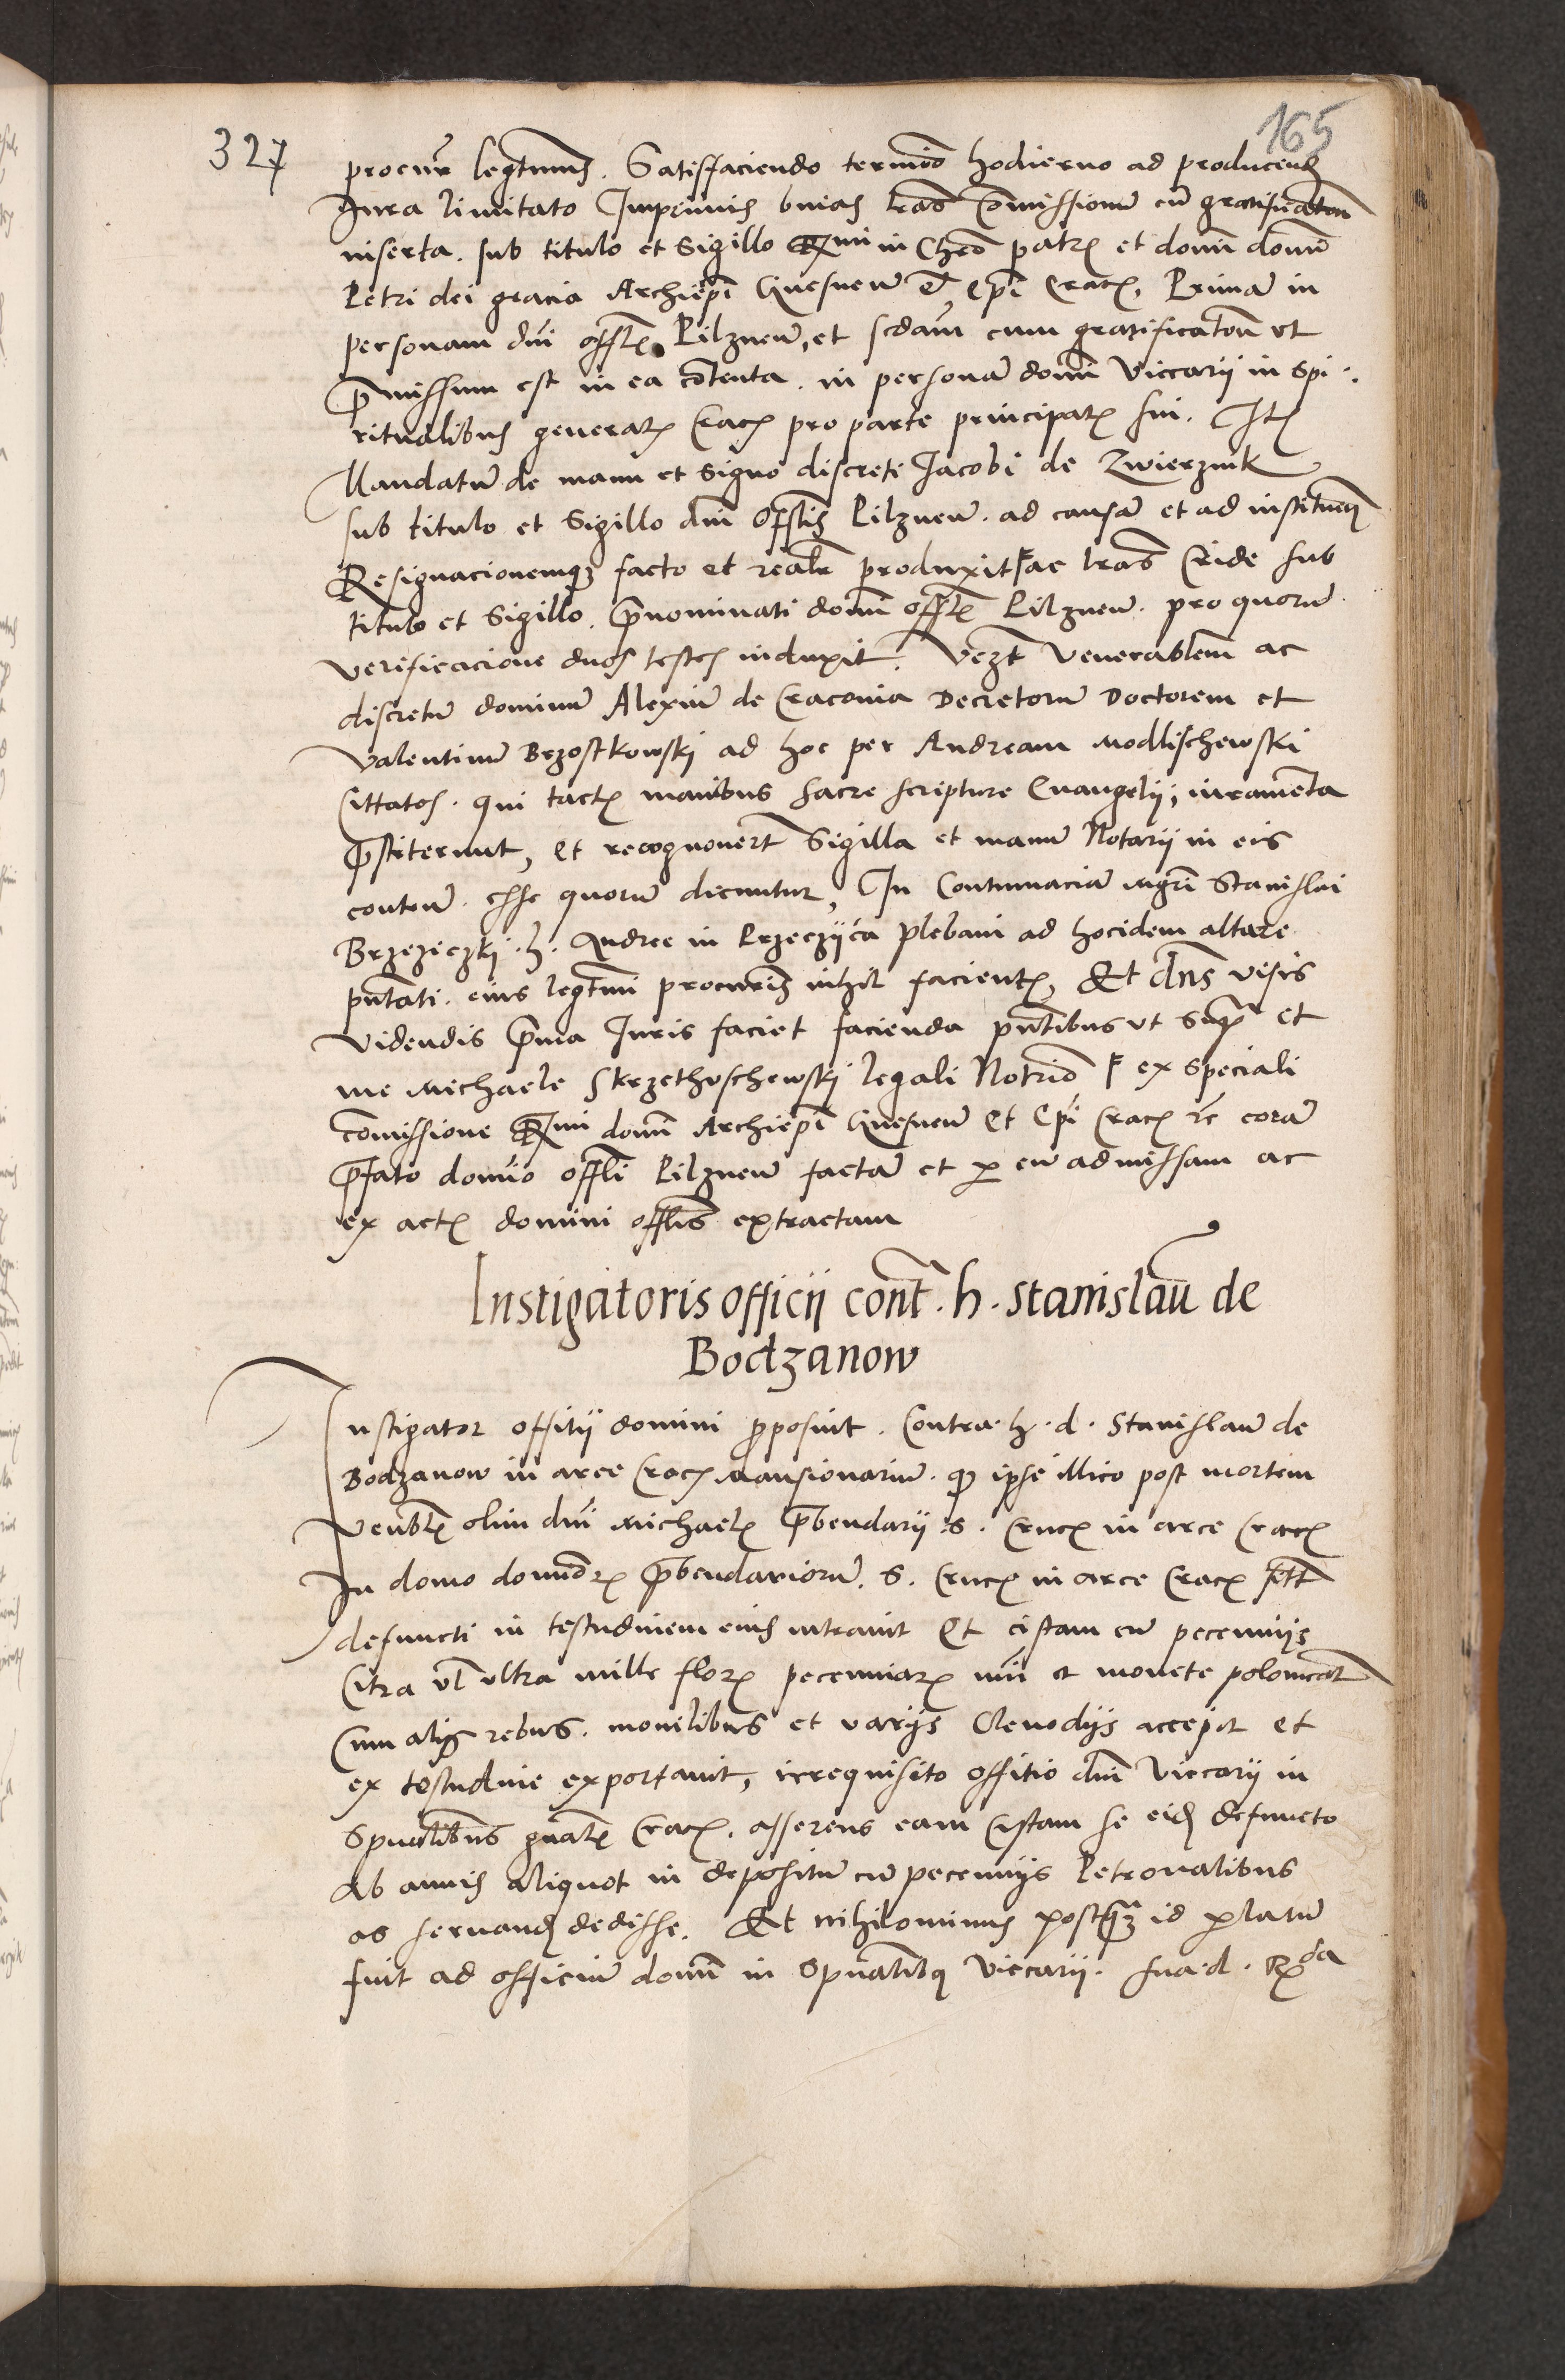 165
327
procur legtimus. Satisfaciendo termino hodierno ad producend
Jura limitato Imprimis binas lras Commissionum cum gratificaton
inserta. sub titulo et Sigillo Rmi in Christo patris et domini domini
Petri dei gracia Archiepi Gnesnen et Epi Crac, Primam in
personam dni offlis Pilznen, et scdam cum gratificaton ut
premissum est in ea contenta. in personam domini Viccarii in Spi
ritualibus generalis Crac pro parte principalis sui. Item
Mandatum de manu et signo discreti Jacobi de Zwierznik
sub titulo et Sigillo dni Offlis Pilznen. ad causam et ad instituend
Resignacionemque facto et realr produxit ac lras Cride sub
titulo et Sigillo. prenominati domini offlis Pilznen. pro quorum
verificacione duos testes induxit. Vezt Venerablem ac
discretum dominum Alexium de Craconia Decretorum Doctorem et
Valentinum Brzostkowski ad hoc per Andream Modlischewski
Cittatos. qui tactis manibus sacre scripture Evangelii; iuramenta
prestiterunt, et recognovert Sigilla et manum Notarii in eis
conten. esse quorum dicuntur, In Contumaciam mgri Stanislai
Brzeziczki. h. Andree in Przeczicza plebani ad hocidem altare
pntati. eius legtimi procuris nihil facientis, Et dns visis
videndis prima Juris faciet facienda pntibus ut supra et
me Michaele Skrzethuschewski legali Notrio ex speciali
comissione Rmi domini Archiepi Gnesnen et Epi Crac rc coram
prefato domino offli Pilznen factam et per eum admissam ac
ex actis domini offlis extractam
Instigatoris officii cont. h. Stanislaum de
Bodzanow
Instigator offitii domini proposuit. Contra. h. d. Stanislaum de
Bodzanow in arce Crac Mansionarium. quod ipse illico post mortem
venblis olim dni Michaelis prebendarii S. Crucis in arce Crac
In domo dominorum prebendariorum. S. Crucis in arce Crac sitt
defuncti in testudinem eius intravit Et cistam cum pecuniis
Citra vl ultra mille flor pecuniarum nri et monete polonicat
Cum aliis rebus. monilibus et variis Clenodiis accepit et
ex testudine exportavit, irrequisito offitio dni Viccarii in
Spualibus gnalis Crac. asserens eam Cistam se eid defuncto
ab annis aliquot in depositum cum pecuniis Petronalibus
ad servand dedisse. Et nihilominus postquam id perlatum
fuit ad officium domini in Spualibus Viccarii. sua. d. Rda